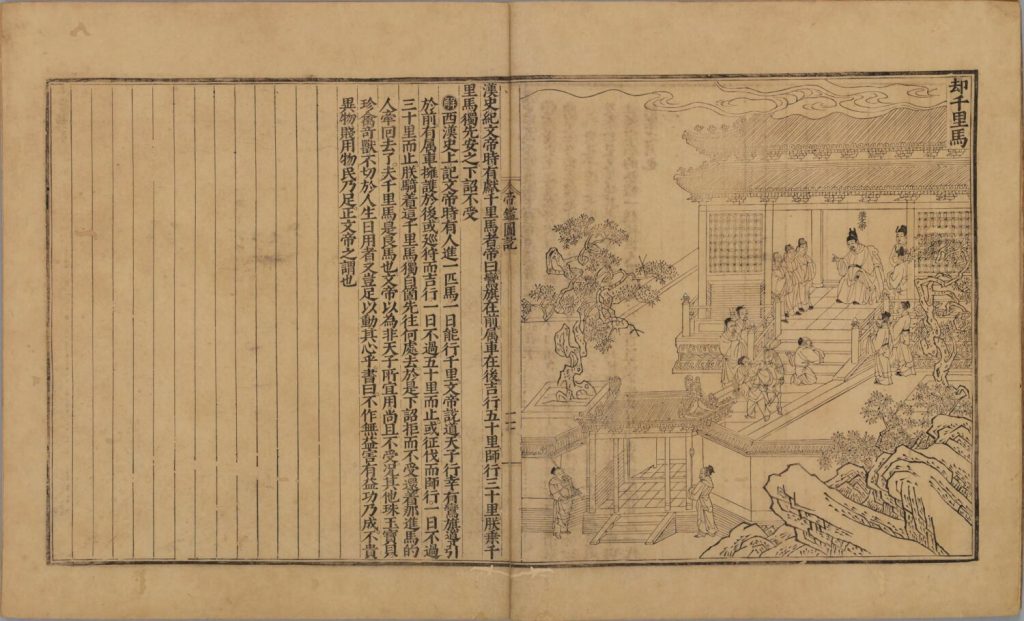 却千里馬
帝鑑圖說
漢史紀文帝時有獻千里馬者帝曰鸞旗在前属車在後吉行五十里師行三十里朕乗千
里馬獨先安之下詔不受
解西漢史上記文帝時有人進一匹馬一日能行千里文帝說道天子行幸有鸞旗導引
於前有属車擁護於後或廵狩而吉行一日不過五十里而止或征伐而師行一日不過
三十里而止朕騎着這千里馬獨自箇先往何處去於是下詔拒而不受還着那進馬的
人牽回去了夫千里馬是良馬也文帝以為非天子所宜用尚且不受况其他珠玉寶貝
珍禽竒獸不切於人生日用者又豈足以動其心乎書曰不作無益害有益功乃成不貴
異物賤用物民乃足正文帝之謂也